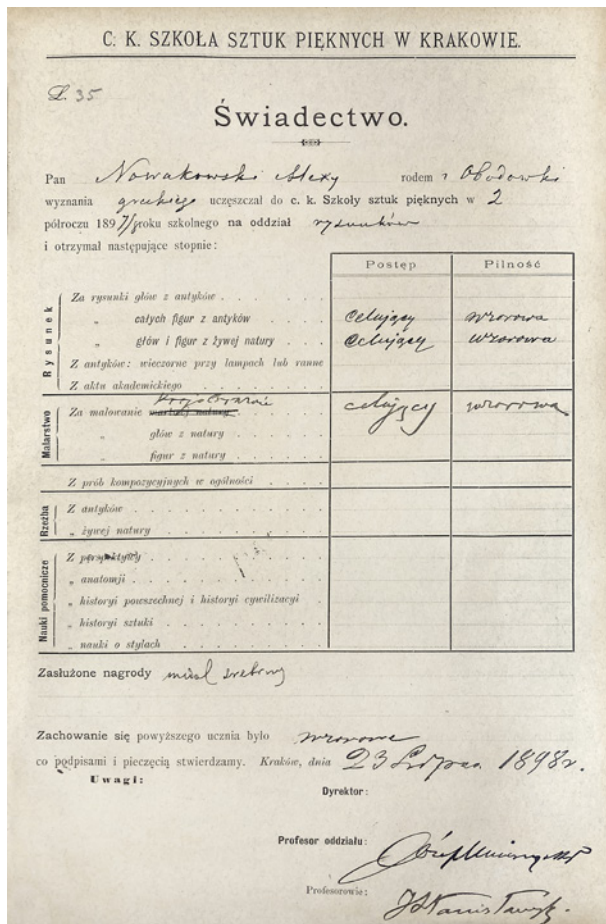 C. K. SZKOŁA SZTUK PIĘKNYCH W KRAKOWIE.
L. 35
Świadectwo.
Pan Nowakowski Alexy rodem z Obodowki
wyznania greckiego uczęszczał do c. k. Szkoły sztuk pięknych w 2
półroczu 1897/8 roku szkolnego na oddział rysunków
i otrzymał następujące stopnie:
Postęp Pilność
Rysunek
Za rysunki głów z antyków
„ całych figur z antyków celujący wzorowa
„ głów i figur z żywej natury celujący wzorowa
Z antyków: wieczorne przy lampach lub ranne
Z aktu akademickiego
Malarstwo
Za malowanie martwej natury celujący wzorowa
„ głów z natury
„ figur z natury
Z prób kompozycyjnych w ogólności
Rzeźba
Z antyków
„ żywej natury
Nauki pomocnicze
Z perspektywy
„ anatomji
„ historyi powszechnej i historyi cywilizacyi
„ historyi sztuki
„ nauki o stylach
Zasłużone nagrody medal srebrny
Zachowanie się powyższego ucznia było wzorowe
co podpisami i pieczęcią stwierdzamy. Kraków, dnia 23 Lipca 1898 r.
Uwagi:
Dyrektor:
Profesor oddziału:
Profesorowie: J Stanisławski